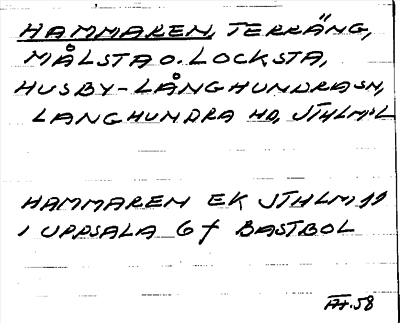 HAMMAREN, TERRÄNG,
MÅLSTA O. LOCKSTA,
HUSBY-LÅNGHUNDRA SN,
LANGHUNDRA HD, STHLM:L
HAMMAREN EK STHLM 11
I UPPSALA 6 f BASTBOL
58